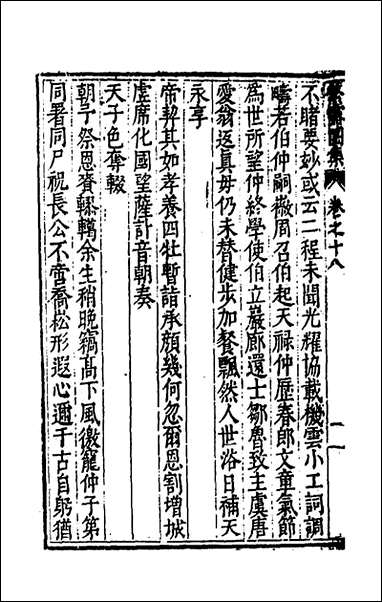 不睹要妙或云二程未聞光耀協載機雲小工詞調
疇若伯仲嗣徽周召伯起天祿仲歷春郎文章氣節
為世所望仲終學使伯立巖廊還士鄒魯致主虞唐
愛翁返真毋仍未替健步加餐飄然人世浴日補天
永享
帝契其如孝養四牡暫詣承顏幾何忽爾恩割增城
虛席化國望薩訃音朝奏
天子色奪輟
朝予祭恩賚轇轕余生稍晚竊高下風徼寵仲子第
同署同尸祝長公不啻喬松形遐心邇千古自躬猶
集 卷之十八